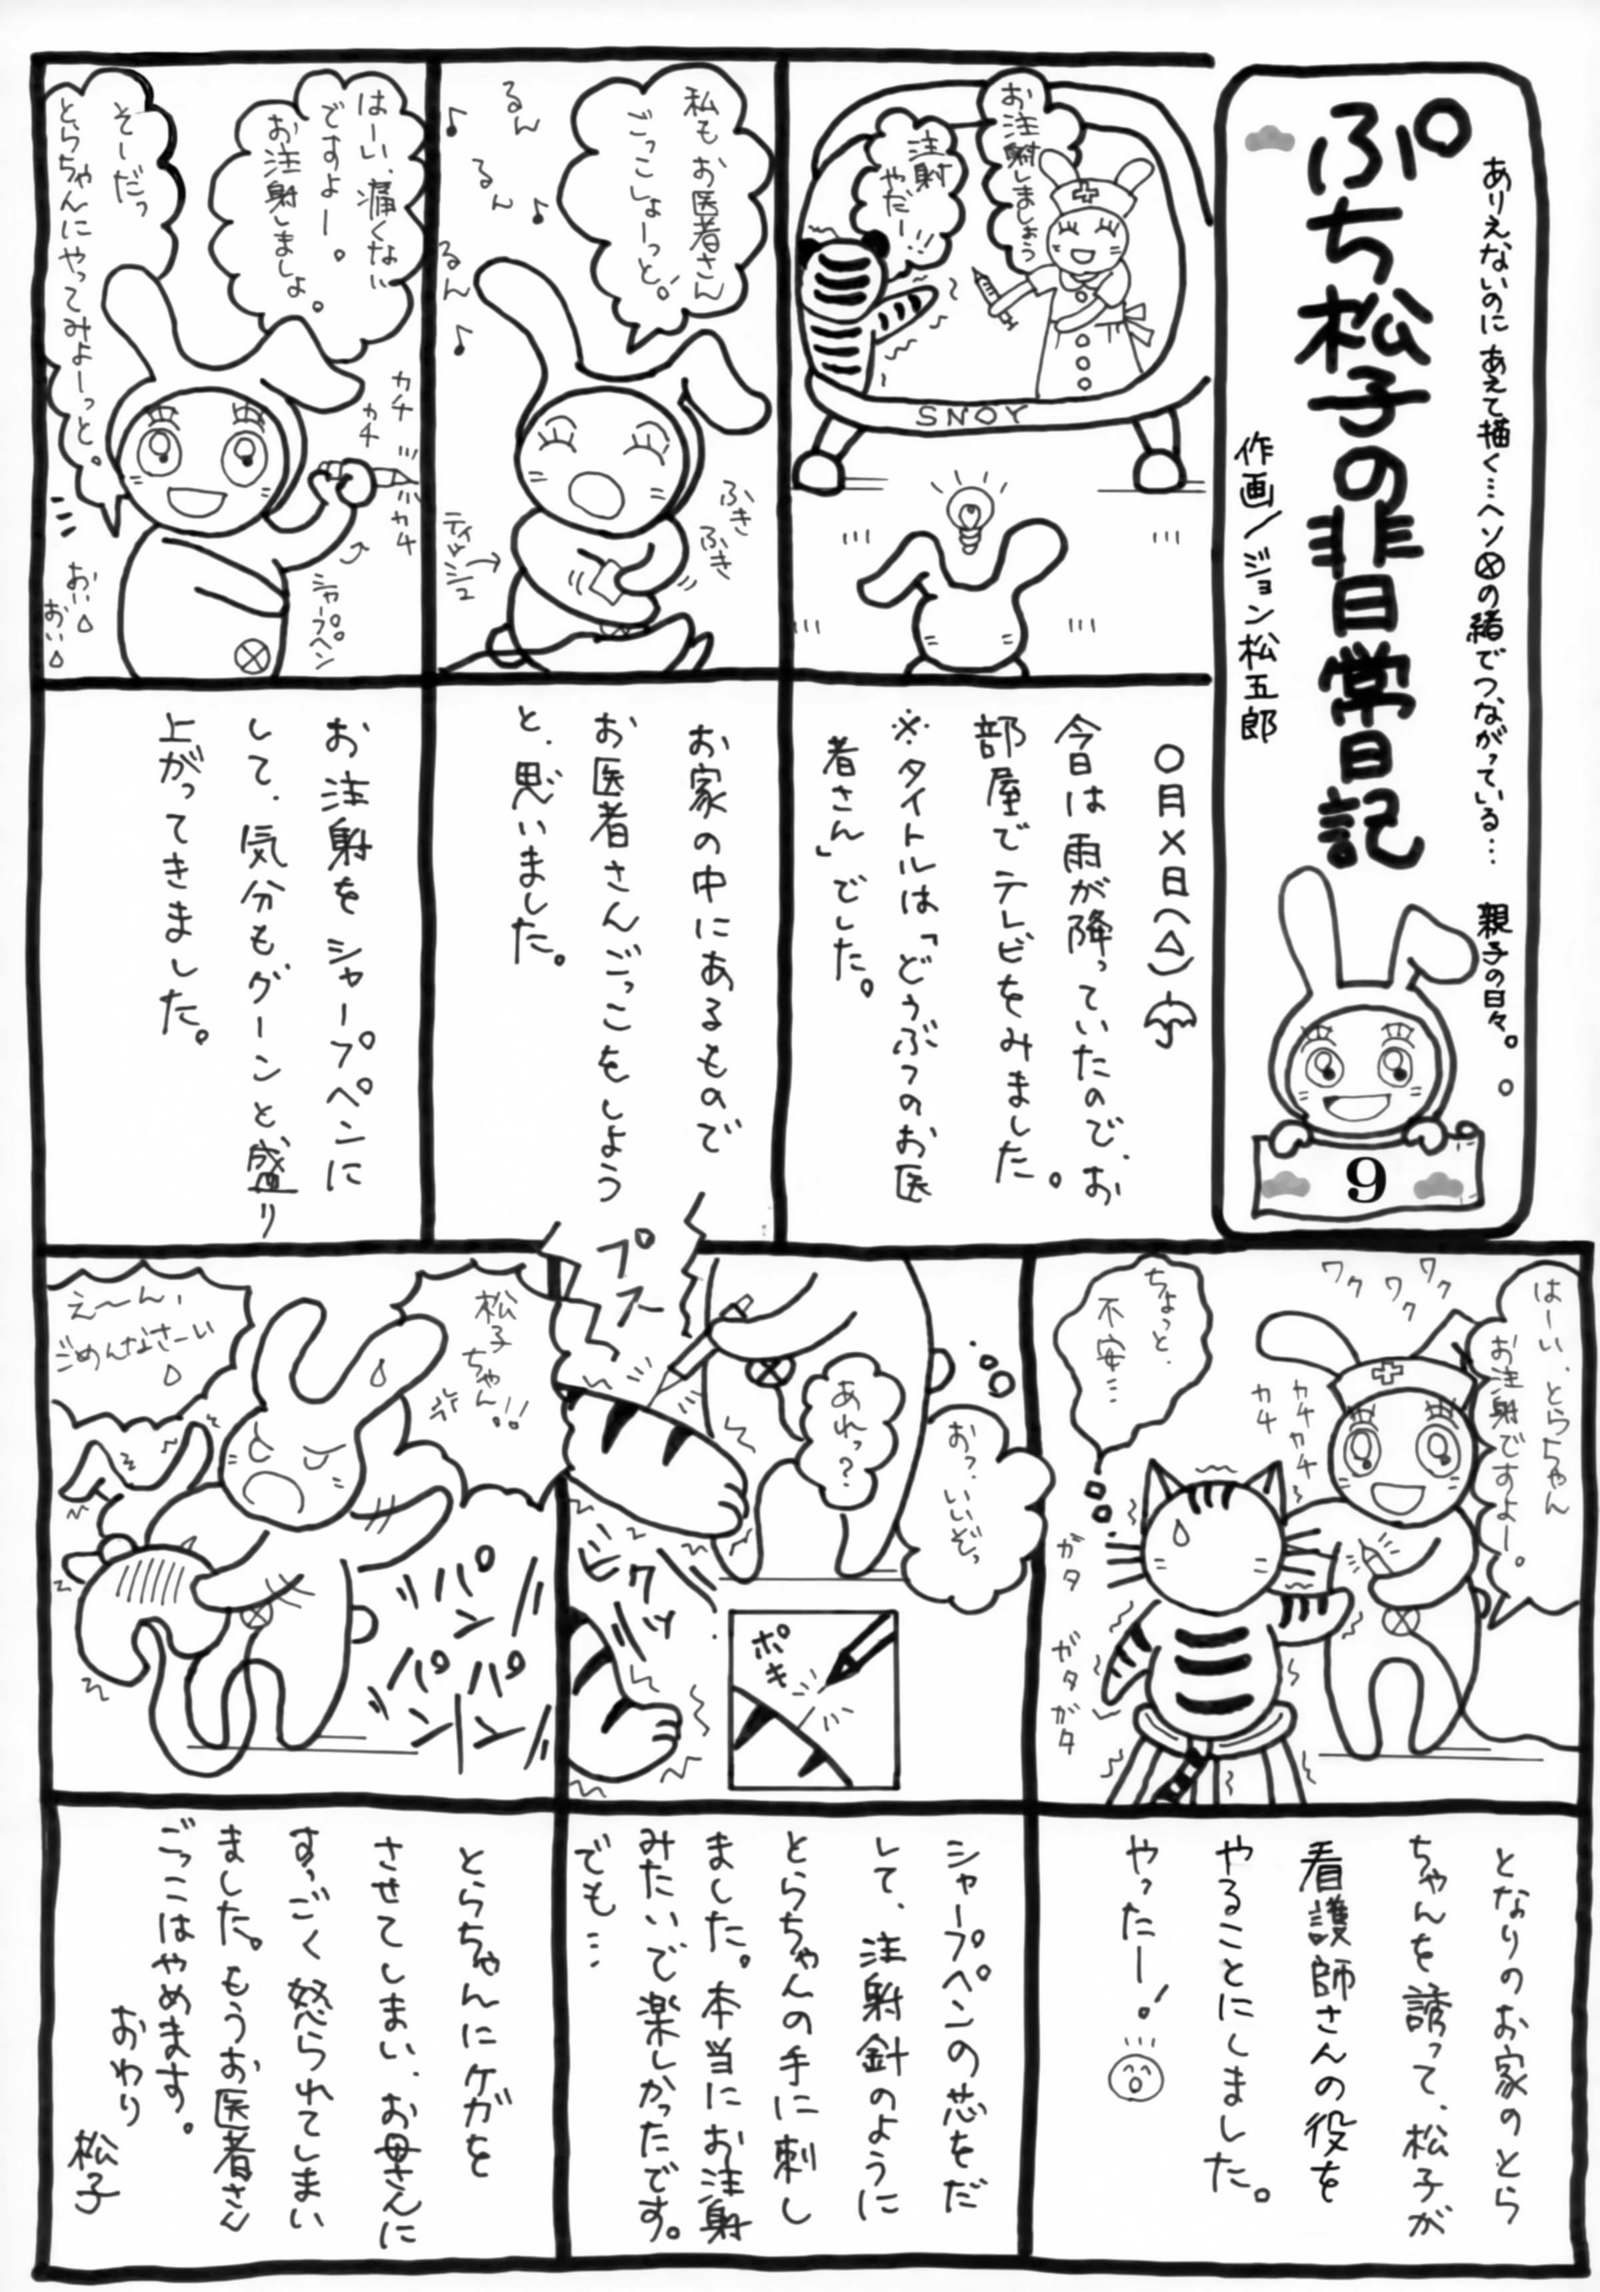 ありえないのにあえて描く…ヘソⓧの緒でつながっている… 親子の日々。
ぷち松子の非日常日記
作画／ジョン松五郎
9
お注射しましょう
注射
やだー!!
SNOY
〇月×日(△)
今日は雨が降っていたので、お
部屋でテレビをみました。
※タイトルは「どうぶつのお医
者さん」でした。
私もお医者さん
ごっこしよーっと。
るん
るん
るん
ふき
ふき
ティッシュ→
お家の中にあるもので
お医者さんごっこをしよう
と、思いました。
はーい、痛くない
ですよー。
お注射しましょ。
そーだっ
とらちゃんにやってみよーっと。
カチ
カチ
カチ
シャープペン
おい
おい
お注射をシャープペンに
して、気分もグーンと盛り
上がってきました。
はーい、とらちゃん
お注射ですよー。
ワク
ワク
ワク
カチ
カチカチ
ちょっと、
不安…
ガタ
ガタガタ
となりのお家のとら
ちゃんを誘って、松子が
看護師さんの役を
やることにしました。
やったー！
おっ、いいぞっ
あれっ？
プスー
ビクッ
ポキ
シャープペンの芯をだ
して、注射針のように
とらちゃんの手に刺し
ました。本当にお注射
みたいで楽しかったです。
でも…
松子
ちゃん!!
え〜ん、
ごめんなさーい
パン
パン
パン
とらちゃんにケガを
させてしまい、お母さんに
すっごく怒られてしまい
ました。もうお医者さん
ごっこはやめます。
おわり
松子